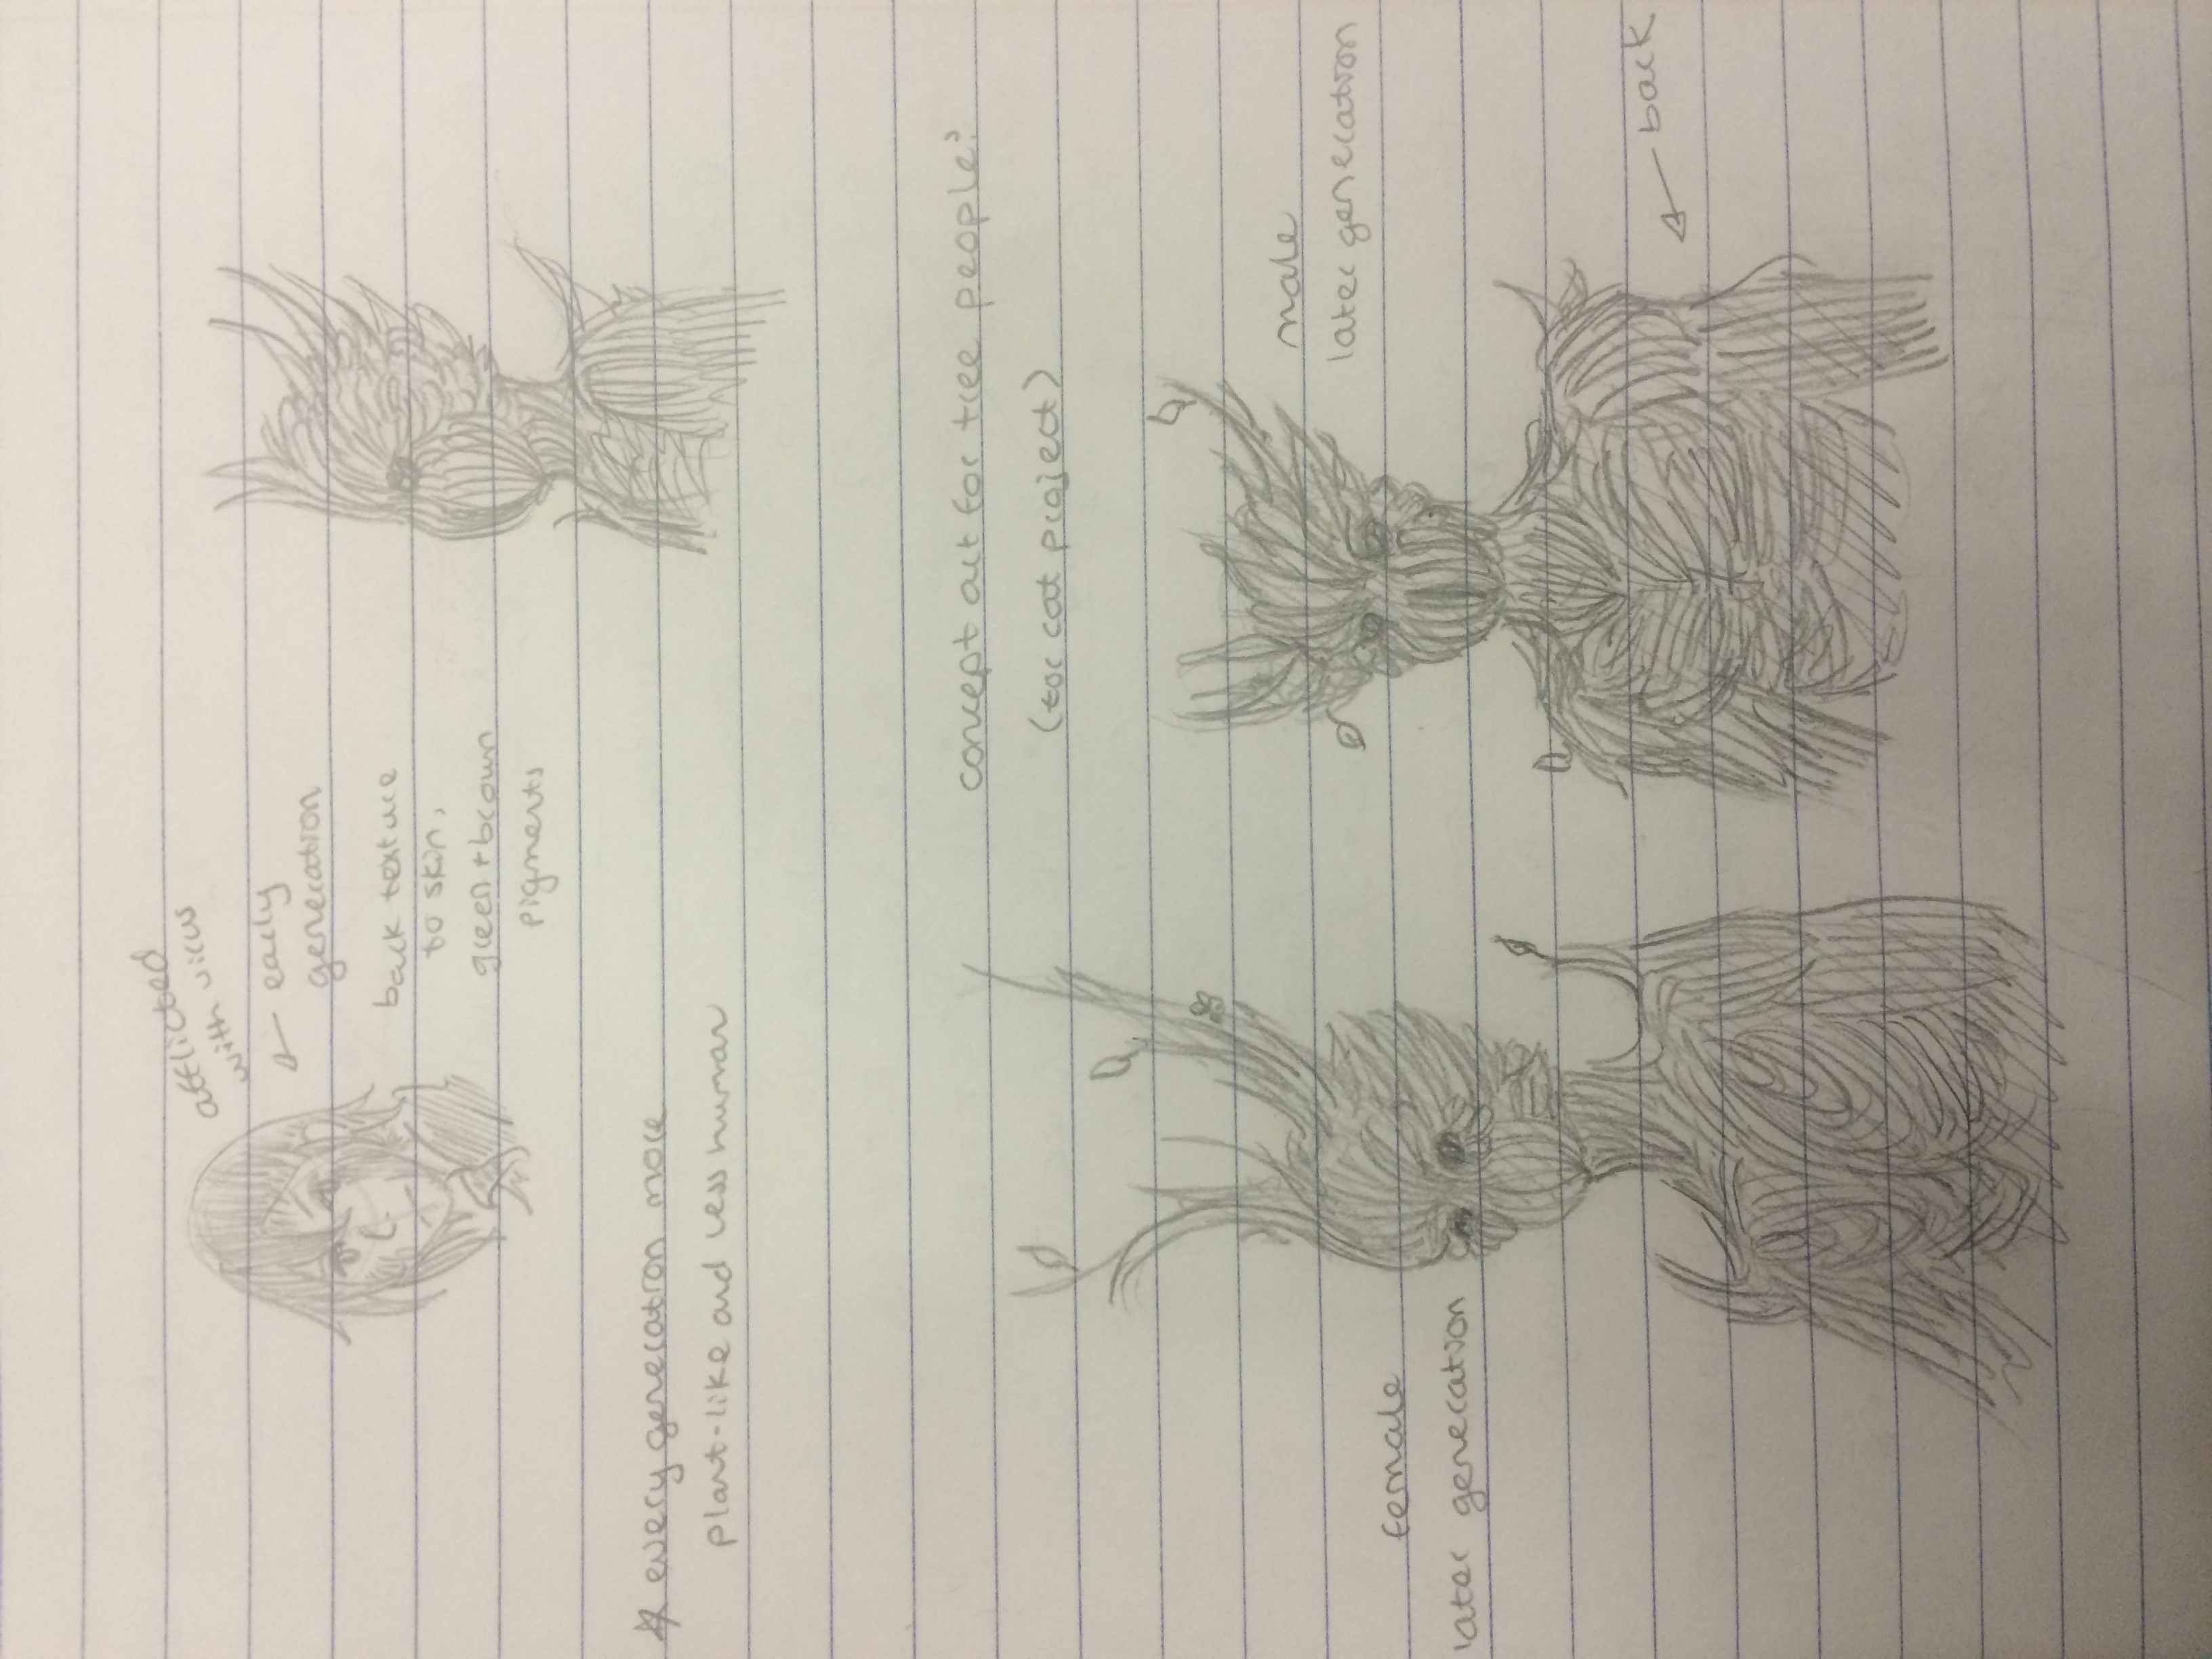 afflicted
with virus
← early
generation
bark texture
to skin,
green + brown
pigments
* every generation more
plant-like and less human
concept art for tree people?
(for cat project)
male
later generation
female
later generation
← bark